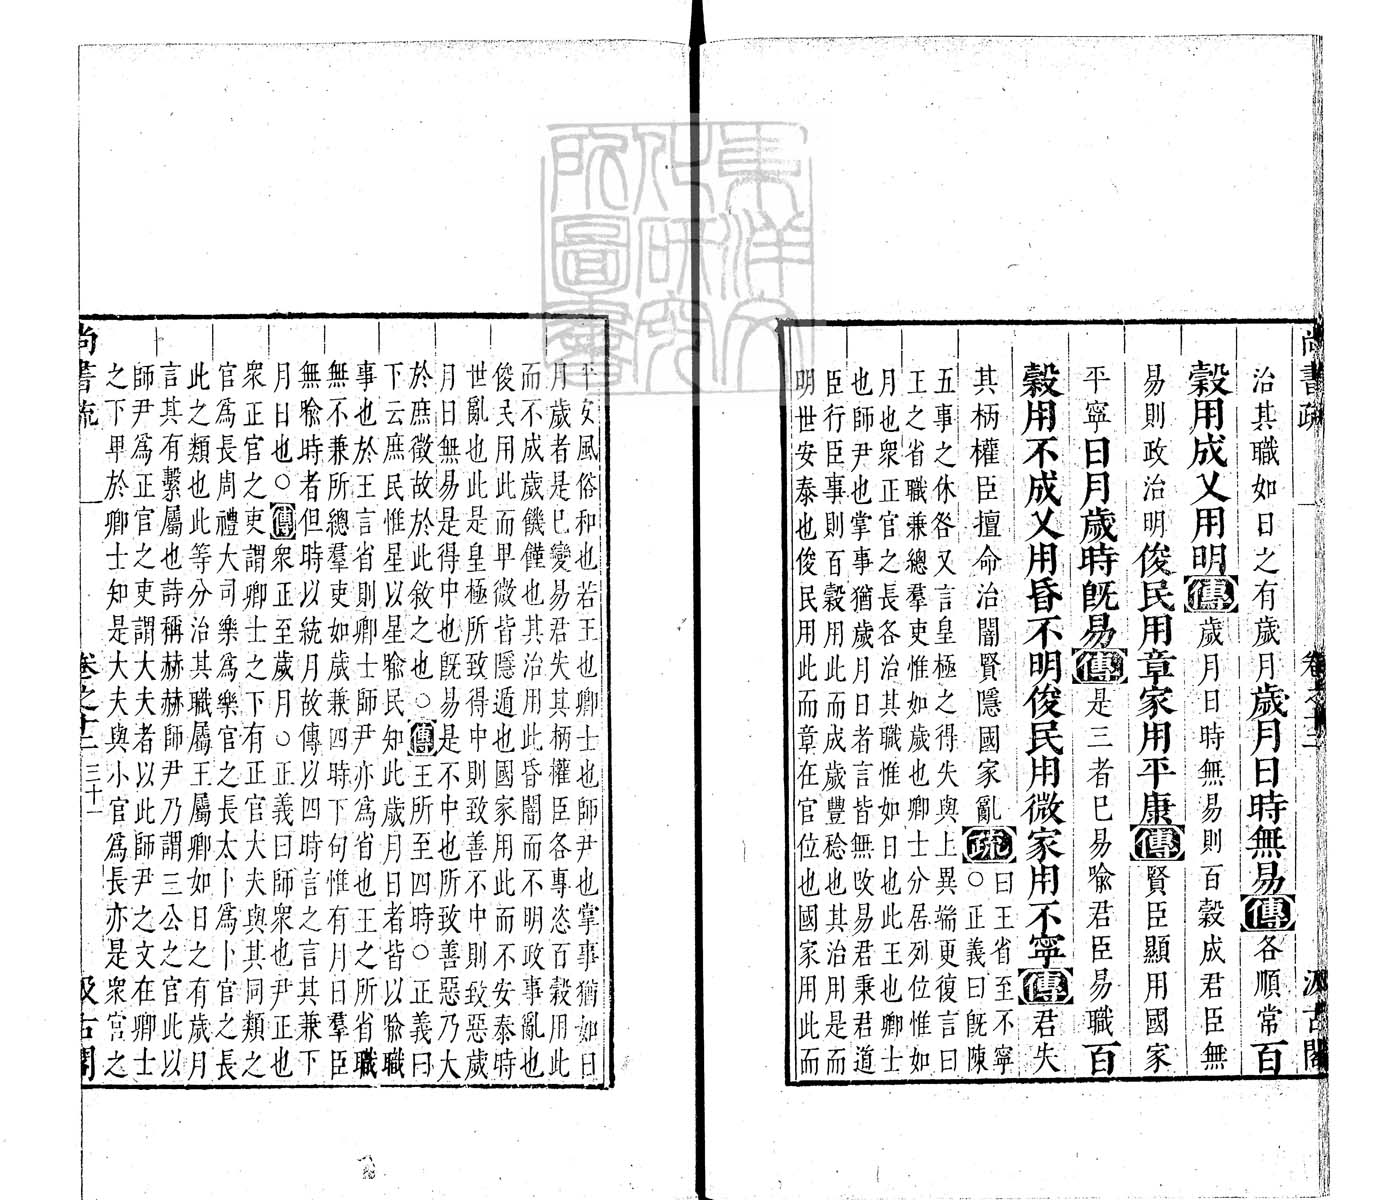 尚書疏 卷之十二 汲古閣
治其職如日之有歲月歲月日時無易傳各順常百
穀用成乂用明傳歲月日時無易則百穀成君臣無
易則政治明俊民用章家用平康傳賢臣顯用國家
平寧日月歲時既易傳是三者已易喻君臣易職百
穀用不成乂用昏不明俊民用微家用不寧傳君失
其柄權臣擅命治闇賢隱國家亂疏曰王省至不寧
○正義曰既陳
五事之休咎又言皇極之得失與上異端更復言曰
王之省職兼總羣吏惟如歲也卿士分居列位惟如
月也衆正官之長各治其職惟如日也此王也卿士
也師尹也掌事猶歲月日者言皆無改易君秉君道
臣行臣事則百穀用此而成歲豐稔也其治用是而
明世安泰也俊民用此而章在官位也國家用此而
平安風俗和也若王也卿士也師尹也掌事猶如日
月歲者是已變易君失其柄權臣各專恣百穀用此
而不成歲饑饉也其治用此昏闇而不明政事亂也
俊民用此而卑微皆隱遁也國家用此而不安泰時
世亂也此是皇極所致得中則致善不中則致惡歲
月日無易是得中也既易是不中也所致善惡乃大
於庶徵故於此敘之也○傳王所至四時○正義曰
下云庶民惟星以星喻民知此歲月日者皆以喻職
事也於王言省則卿士師尹亦爲省也王之所省職
無不兼所總羣吏如歲兼四時下句惟有月日羣臣
無喻時者但時以統月故傳以四時言之言其兼下
月日也○傳衆正至歲月○正義曰師衆也尹正也
衆正官之吏謂卿士之下有正官大夫與其同類之
官爲長周禮大司樂爲樂官之長太卜爲卜官之長
此之類也此等分治其職屬王屬卿如日之有歲月
言其有繫屬也詩稱赫赫師尹乃謂三公之官此以
師尹爲正官之吏謂大夫者以此師尹之文在卿士
之下卑於卿士知是大夫與小官爲長亦是衆官之
尚書疏 卷之十二 三十一 汲古閣
東洋文化研究所圖書